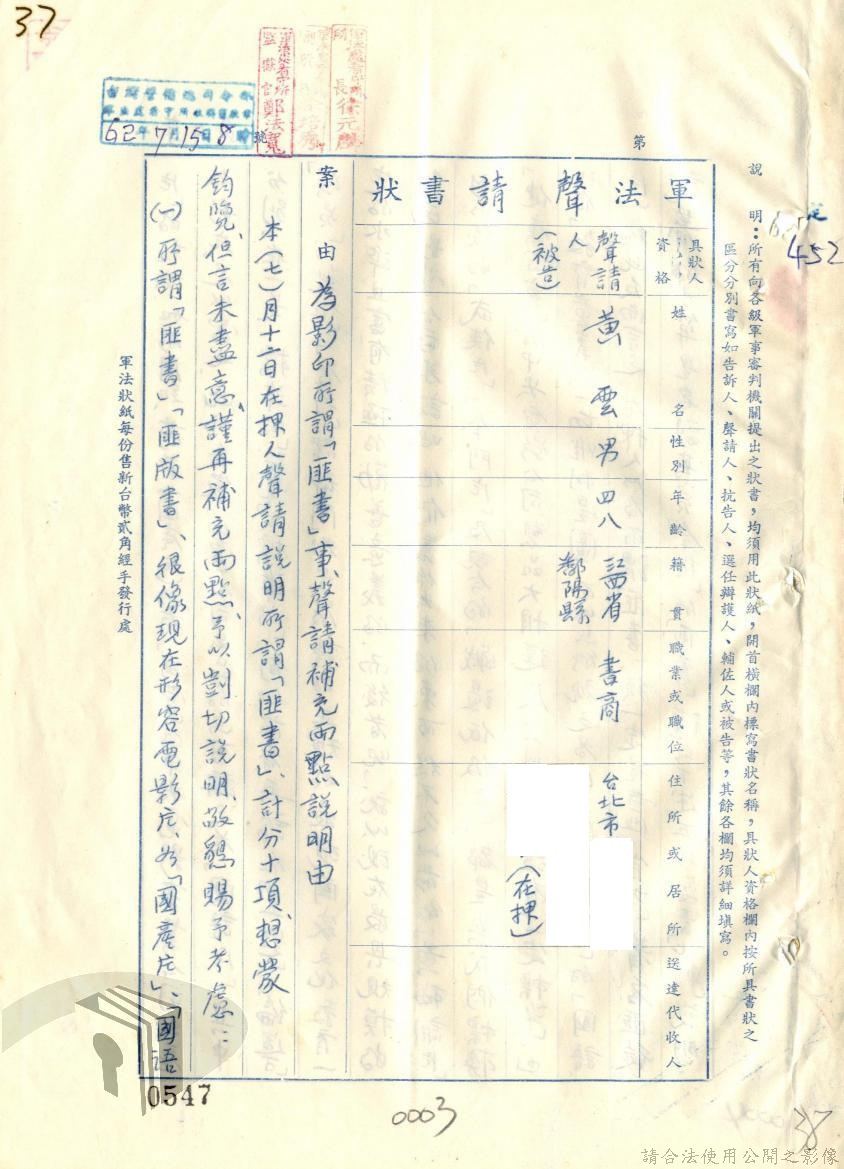 37
台灣警備總司令部
62年7月15日8時
號
監獄官鄭法寬
長徐元麟
第
說明：所有向各級軍事審判機關提出之狀書，均須用此狀紙，開首橫欄內標寫書狀名稱，具狀人資格欄內按所具書狀之
區分分別書寫如告訴人、聲請人、抗告人、選任辯護人、輔佐人或被告等，其餘各欄均須詳細填寫。
452
軍法聲請書狀
具狀人資格
姓名
性別
年齡
籍貫
職業或職位
住所或居所
送達代收人
聲請人（被告）
黃雲
男
四八
江西省鄱陽縣
書商
台北市
（在押）
案由 為影印所謂「匪書」事、聲請補充兩點說明由
本（七）月十二日在押人聲請說明所謂「匪書」、計分十項、想蒙
鈞覽、但言未盡意、謹再補充兩點、予以剴切說明、敬懇賜予考慮：
（一）所謂「匪書」「匪版書」、很像現在形容電影片、如「國產片」、「國語
軍法狀紙每份售新台幣貳角經手發行處
0547
0003
38
請合法使用公開之影像